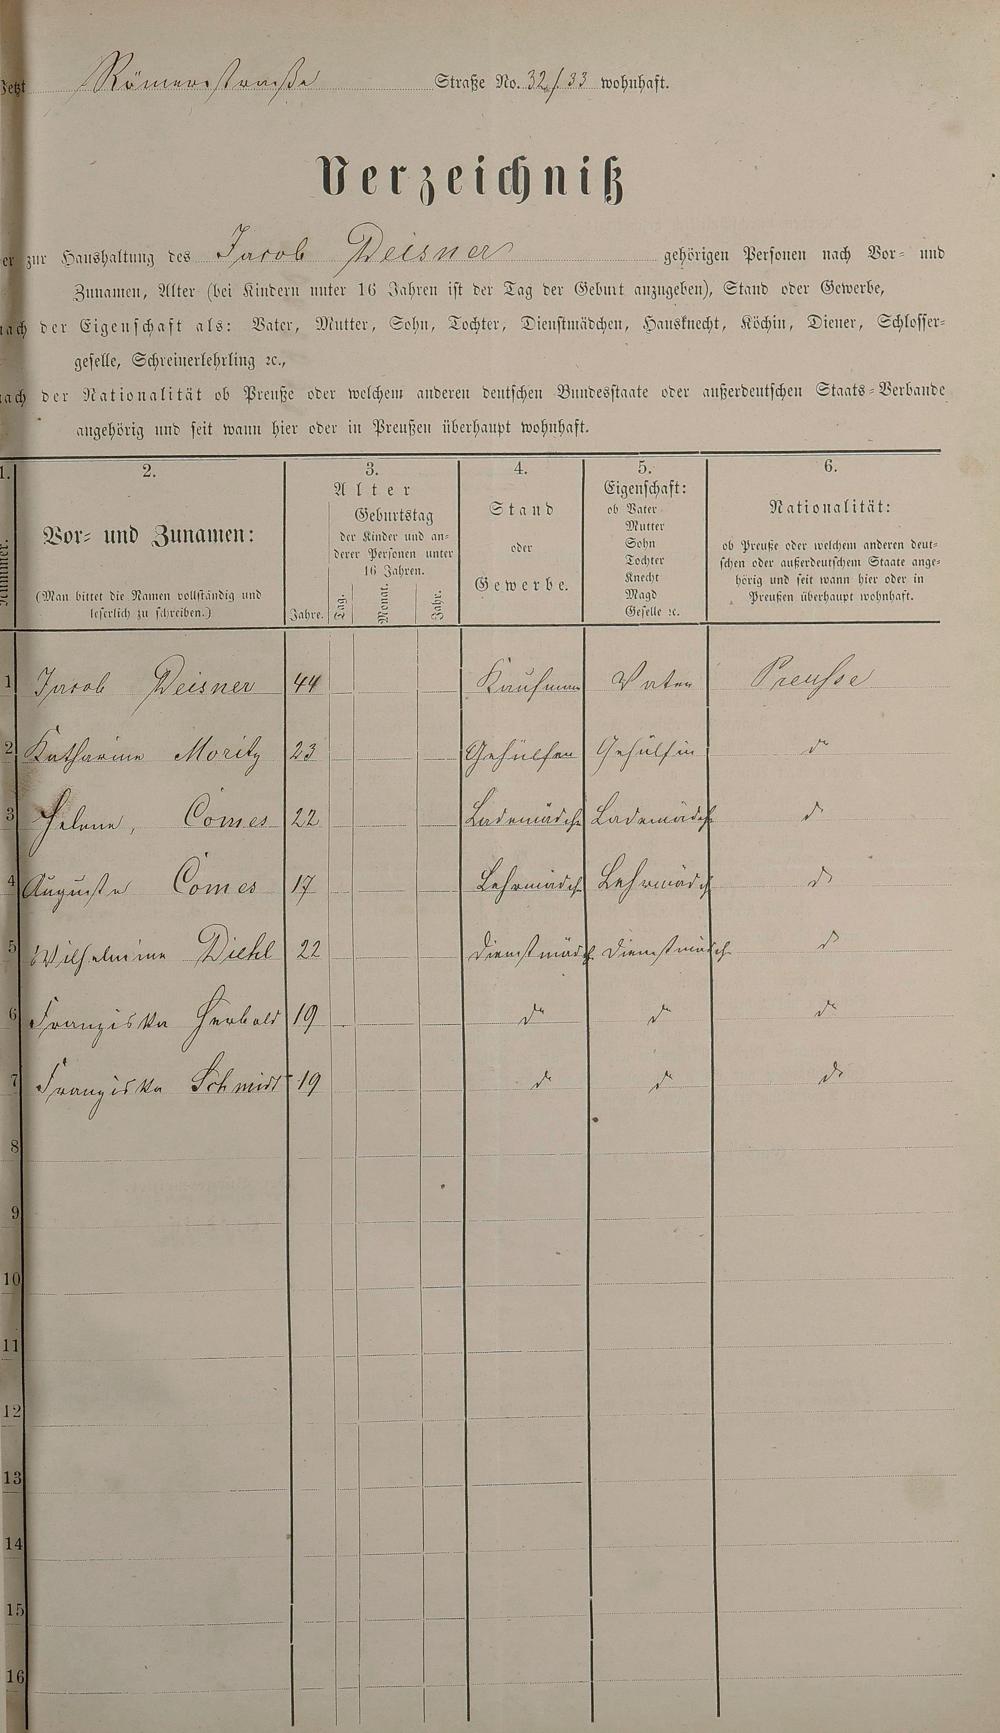 Jetzt Römerstraße Straße No. 32/33 wohnhaft.
Verzeichniß
er zur Haushaltung des Jacob Deisner gehörigen Personen nach Vor- und
Zunamen, Alter (bei Kindern unter 16 Jahren ist der Tag der Geburt anzugeben), Stand oder Gewerbe,
nach der Eigenschaft als: Vater, Mutter, Sohn, Tochter, Dienstmädchen, Hausknecht, Köchin, Diener, Schlosser-
geselle, Schreinerlehrling ꝛc.,
nach der Nationalität ob Preuße oder welchem anderen deutschen Bundesstaate oder außerdeutschen Staats-Verbande
angehörig und seit wann hier oder in Preußen überhaupt wohnhaft.
1. 2. 3. 4. 5. 6.
Nummer.
Vor- und Zunamen:
(Man bittet die Namen vollständig und
leserlich zu schreiben.)
Alter
Jahre.
Geburtstag
der Kinder und an-
derer Personen unter
16 Jahren.
Tag. Monat. Jahr.
Stand
oder
Gewerbe.
Eigenschaft:
ob Vater
Mutter
Sohn
Tochter
Knecht
Magd
Geselle ꝛc.
Nationalität:
ob Preuße oder welchem anderen deut-
schen oder außerdeutschem Staate ange-
hörig und seit wann hier oder in
Preußen überhaupt wohnhaft.
1 Jacob Deisner 44 Kaufmann Vater Preusse
2 Katharine Moritz 23 Gehülfen Gehülfin do
3 Helene, Comes 22 Ladenmädch Ladenmädch do
4 Auguste Comes 17 Lehrmädch Lehrmädch do
5 Wilhelmine Diehl 22 Dienstmädch Dienstmädch do
6 Franziska Herbold 19 do do do
7 Franziska Schmidt 19 do do do
8
9
10
11
12
13
14
15
16